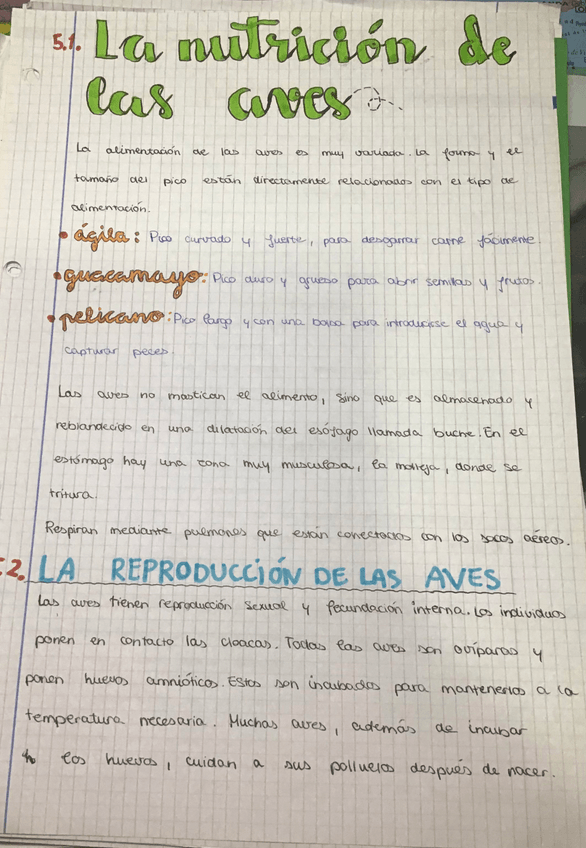 5.1. La nutrición de
las aves
La alimentación de las aves es muy variada. La forma y el
tamaño del pico están directamente relacionados con el tipo de
alimentación.
• ágila: Pico curvado y fuerte, para desgarrar carne fácilmente
• guacamayo: Pico duro y grueso para abrir semillas y frutos.
• pelicano: Pico largo y con una bolsa para introducirse el agua y
capturar peces.
Las aves no mastican el alimento, sino que es almacenado y
reblandecido en una dilatación del esófago llamada buche. En el
estómago hay una zona muy musculosa, la molleja, donde se
tritura.
Respiran mediante pulmones que están conectados con los sacos aéreos.
2. LA REPRODUCCIÓN DE LAS AVES
Las aves tienen reproducción sexual y fecundación interna. Los individuos
ponen en contacto las cloacas. Todas las aves son ovíparas y
ponen huevos amnióticos. Estos son incubados para mantenerlos a la
temperatura necesaria. Muchas aves, además de incubar
los huevos, cuidan a sus polluelos después de nacer.